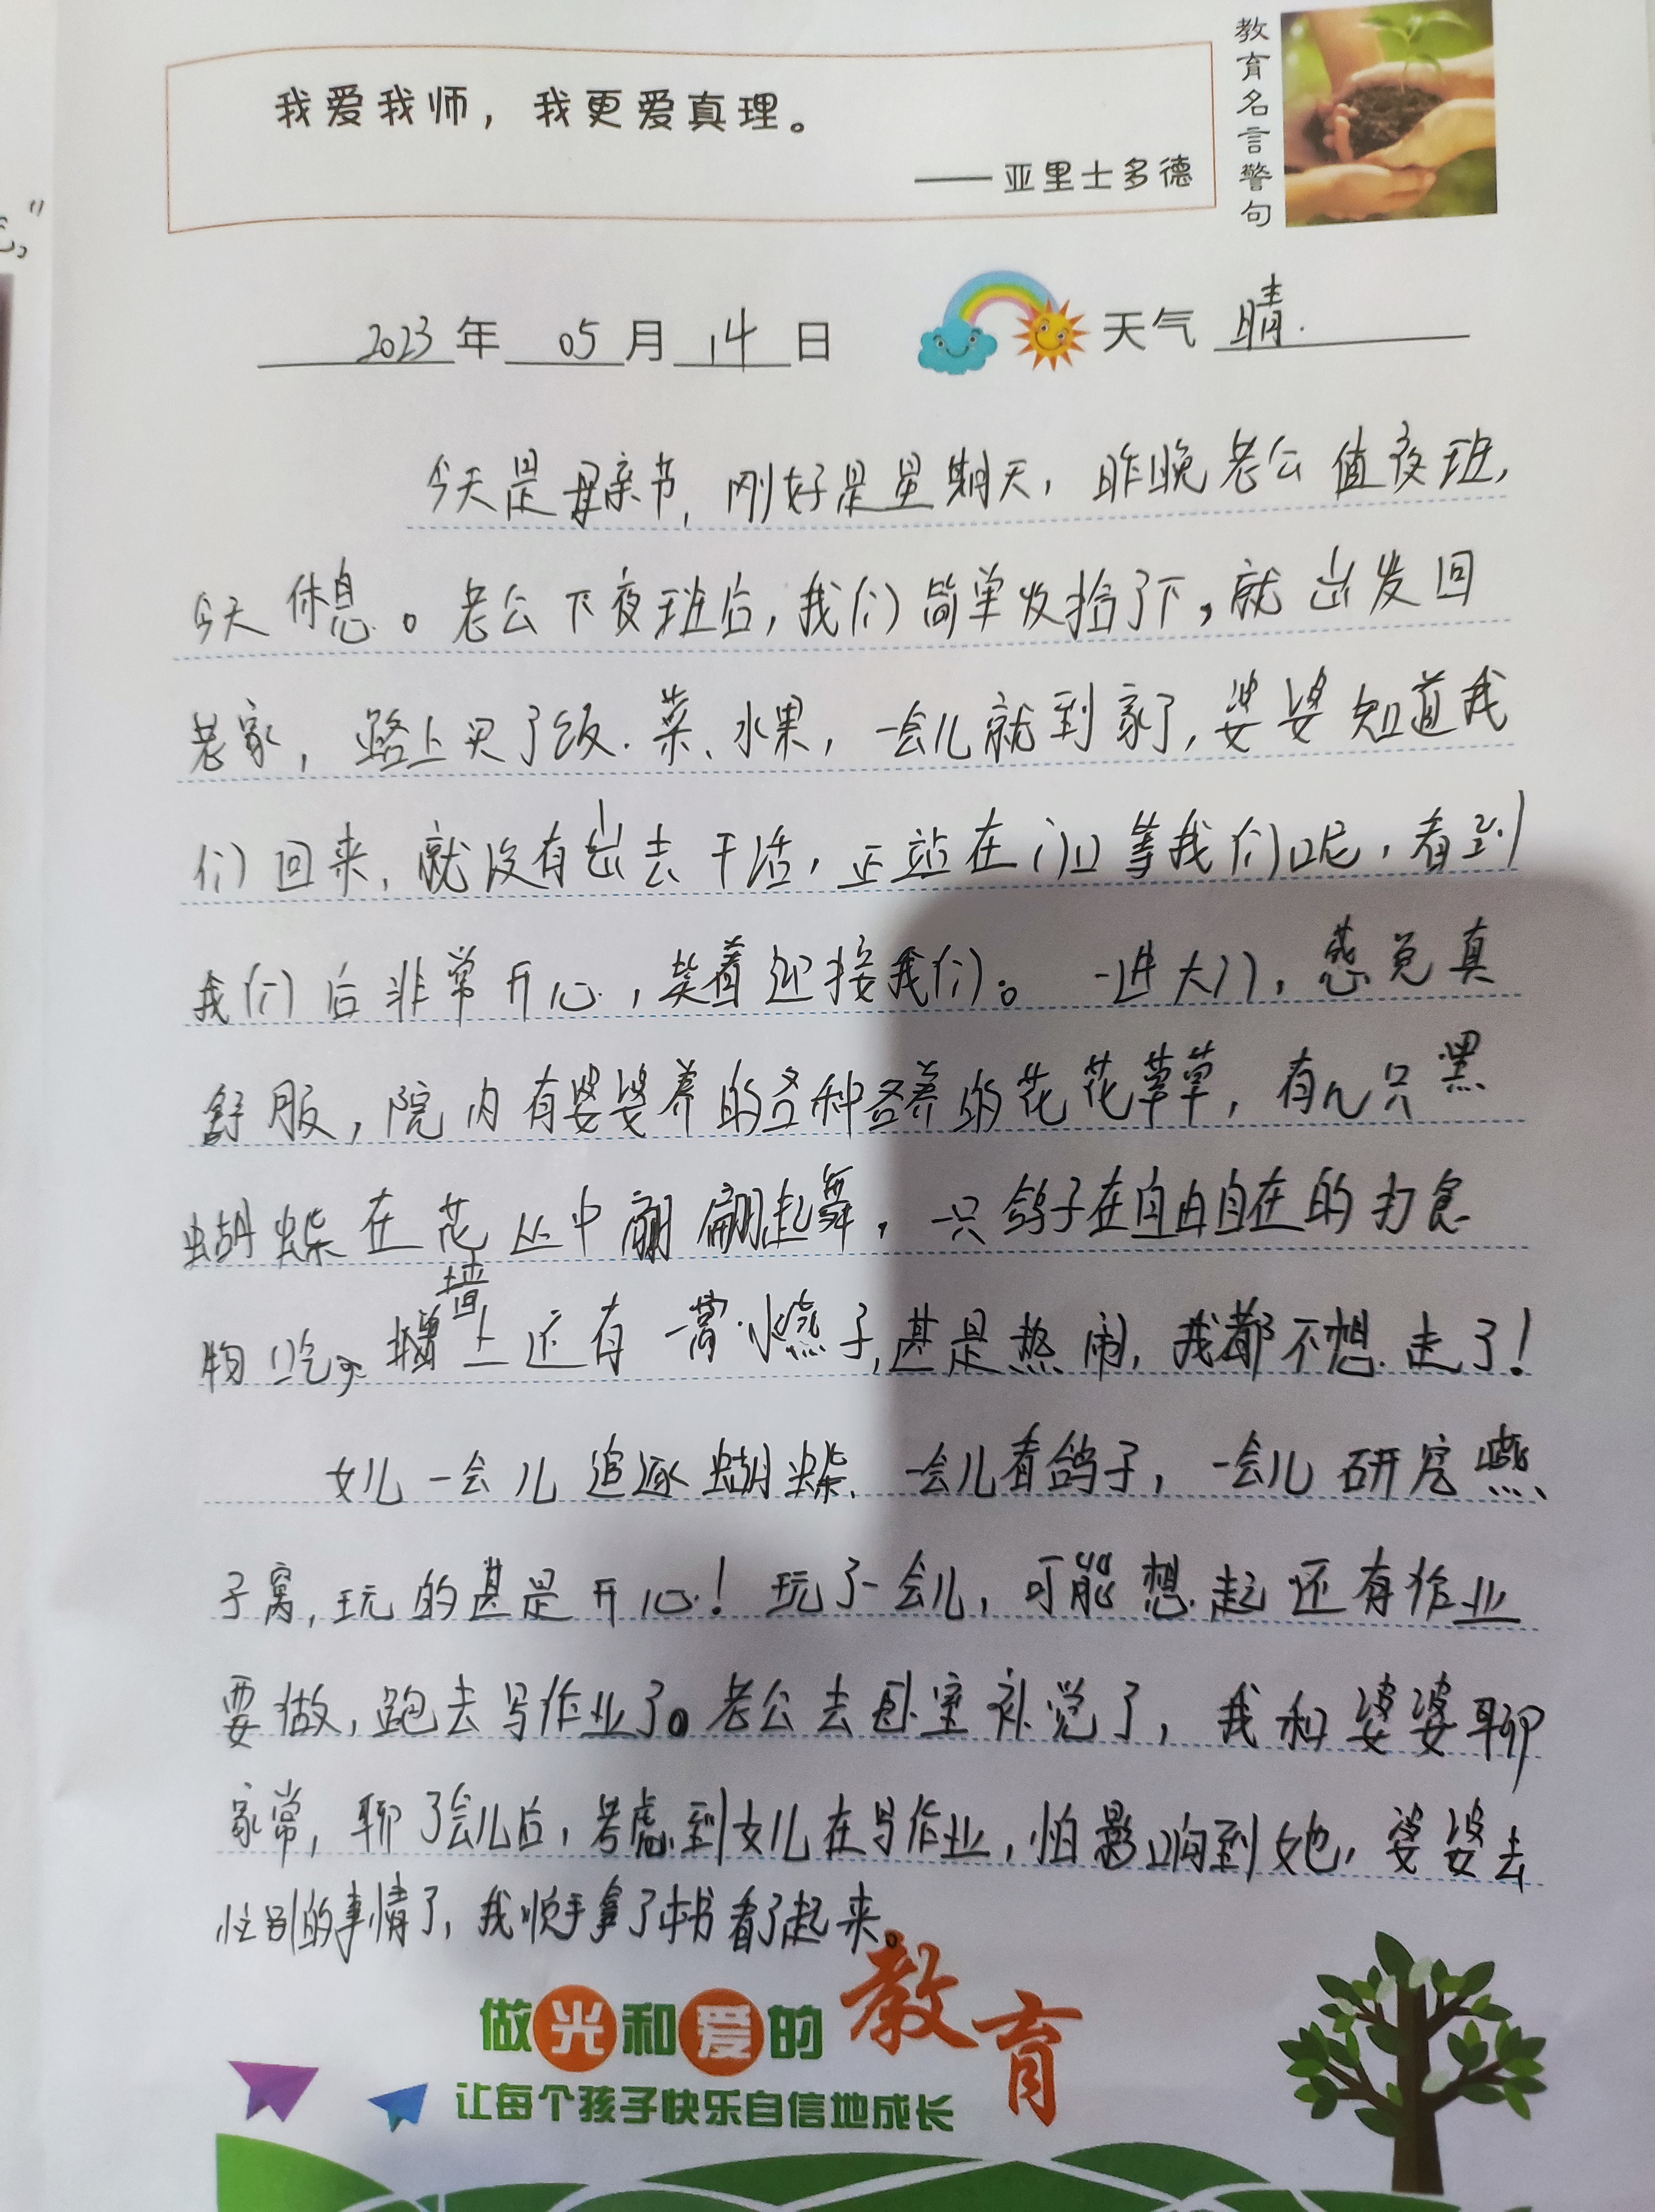 我爱我师，我更爱真理。
——亚里士多德
教育名言警句
2023年05月14日 天气 晴.
今天是母亲节，刚好是星期天，昨晚老公值夜班，
今天休息。老公下夜班后，我们简单收拾了下，就出发回
老家，路上买了饭、菜、水果，一会儿就到家了，婆婆知道我
们回来，就没有出去干活，正站在门口等我们呢，看到
我们后非常开心，笑着迎接我们。一进大门，感觉真
舒服，院内有婆婆养的各种各养的花花草草，有几只黑
蝴蝶在花丛中翩翩起舞，一只鸽子在自由自在的打食
物吃，墙上还有一窝小燕子，甚是热闹，我都不想走了！
女儿一会儿追逐蝴蝶、一会儿看鸽子，一会儿研究燕
子窝，玩的甚是开心！玩了一会儿，可能想起还有作业
要做，跑去写作业了。老公去卧室补觉了，我和婆婆聊
家常，聊了会儿后，考虑到女儿在写作业，怕影响到她，婆婆去
忙别的事情了，我顺手拿了本书看了起来。
做光和爱的教育
让每个孩子快乐自信地成长